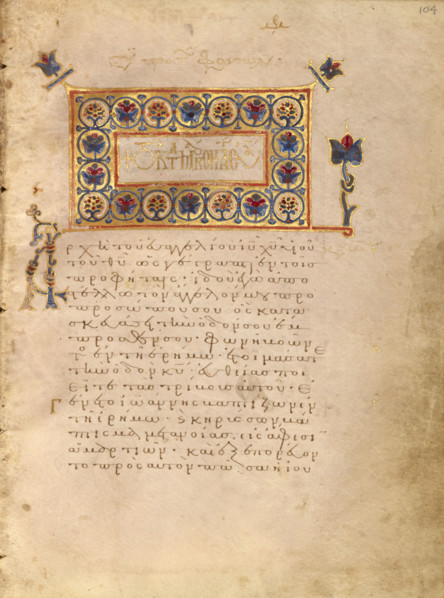 104
κατὰ Μάρκον
Ἀρχὴ τοῦ εὐαγγελίου ιυ χυ υἱοῦ
τοῦ θυ ὡς γέγραπται ἐν τοῖς
προφήταις· ἰδοὺ ἐγὼ ἀπο
στέλλω τὸν ἄγγελόν μου πρὸ
προσώπου σου ὃς κατα
σκευάσει τὴν ὁδόν σου ἔμ
προσθέν σου· φωνὴ βοῶν
τος ἐν τῇ ἐρήμῳ· ἑτοιμάσατε
τὴν ὁδὸν κυ· εὐθείας ποι
εῖτε τὰς τρίβους αὐτοῦ· ἐ
γένετο ἰωάννης βαπτίζων ἐν
τῇ ἐρήμῳ· καὶ κηρύσσων βά
πτισμα μετανοίας εἰς ἄφεσιν
ἁμαρτιῶν· καὶ ἐξεπορεύον
το πρὸς αὐτὸν πᾶσα ἡ ιου